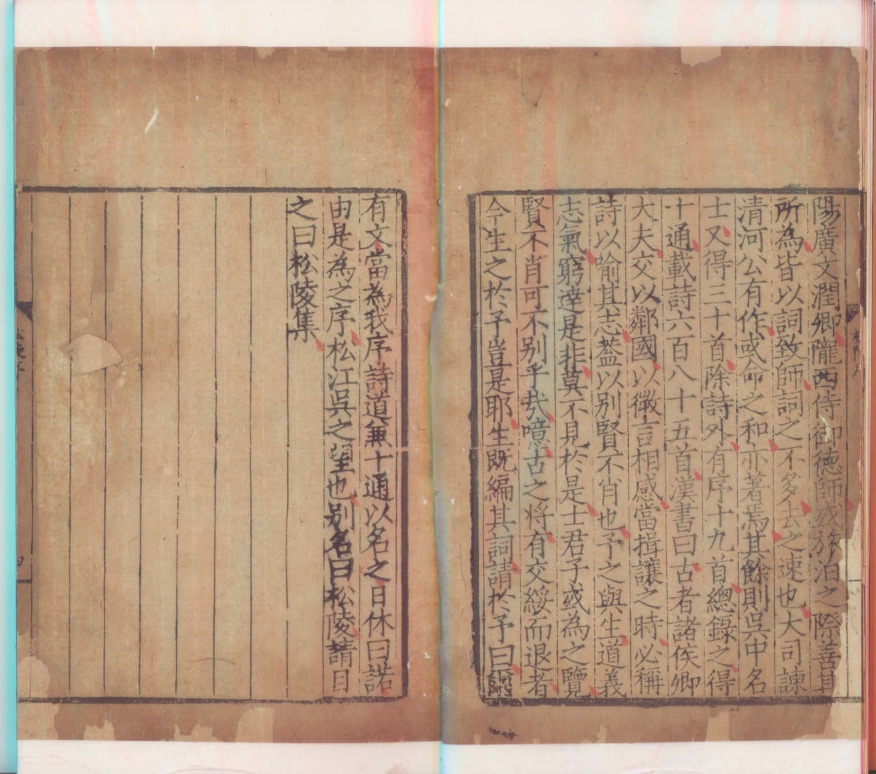 陽廣文潤卿隴西侍御德師或旅泊之際善其
所為皆以詞致師詞之不多去之速也大司諫
清河公有作或命之和亦著焉其餘則吳中名
士又得三十首除詩外有序十九首總錄之得
十通載詩六百八十五首漢書曰古者諸侯卿
大夫交以鄰國以微言相感當揖讓之時必稱
詩以喻其志葢以別賢不肖也予之與生道義
志氣窮達是非莫不見於是士君子或為之覽
賢不肖可不别乎㢤噫古之將有交綏而退者
今生之於予豈是耶生既編其詞請於予曰
有文當為我序詩道兼十通以名之日休曰諾
由是為之序松江吳之望也别名曰松陵請目
之曰松陵集